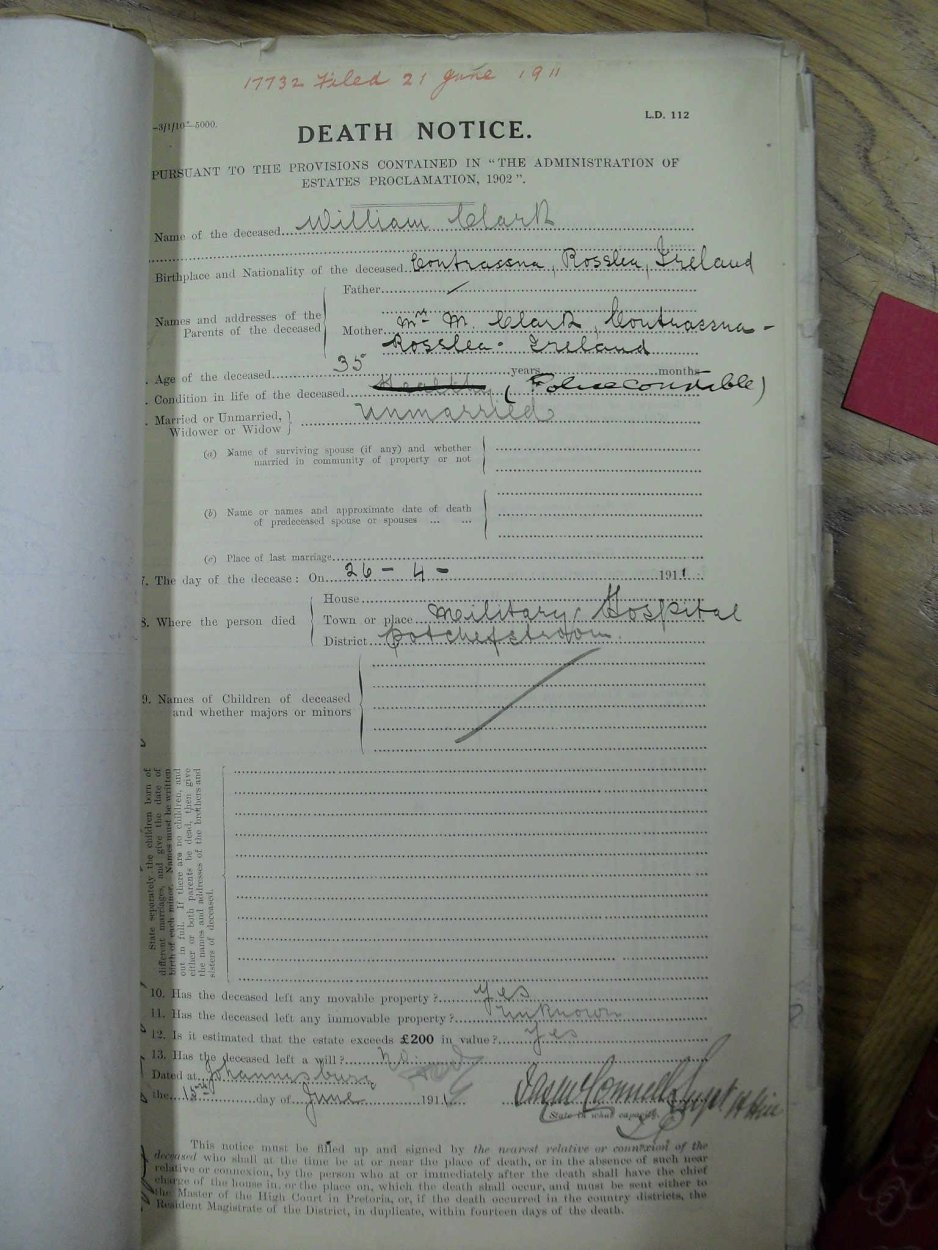 17732 Filed 21 June 1911
—3/1/10—5000.
L.D. 112
DEATH NOTICE.
PURSUANT TO THE PROVISIONS CONTAINED IN "THE ADMINISTRATION OF
ESTATES PROCLAMATION, 1902".
Name of the deceased William Clark
Birthplace and Nationality of the deceased Contrassna, Rosslea, Ireland
Names and addresses of the Parents of the deceased
Father
Mother Mrs M. Clark, Contrassna -
Rosslea. Ireland
. Age of the deceased 35 years months
. Condition in life of the deceased Healthy (Police constable)
. Married or Unmarried, Widower or Widow Unmarried
(a) Name of surviving spouse (if any) and whether
married in community of property or not
(b) Name or names and approximate date of death
of predeceased spouse or spouses ... ...
(c) Place of last marriage
7. The day of the decease: On 26 - 4 - 1911.
8. Where the person died
House
Town or place Military Hospital
District Potchefstroom.
9. Names of Children of deceased
and whether majors or minors
State separately the children born of
different marriages, and give the date of
birth of each minor. Names must be written
out in full. If there are no children, and
either or both parents be dead, then give
the names and addresses of the brothers and
sisters of deceased.
10. Has the deceased left any movable property? Yes
11. Has the deceased left any immovable property? Unknown
12. Is it estimated that the estate exceeds £200 in value? Yes
13. Has the deceased left a will? No.
Dated at Johannesburg
the 15th day of June 1911
State in what capacity.
This notice must be filled up and signed by the nearest relative or connexion of the
deceased who shall at the time be at or near the place of death, or in the absence of such near
relative or connexion, by the person who at or immediately after the death shall have the chief
charge of the house in, or the place on, which the death shall occur, and must be sent either to
the Master of the High Court in Pretoria, or, if the death occurred in the country districts, the
Resident Magistrate of the District, in duplicate, within fourteen days of the death.